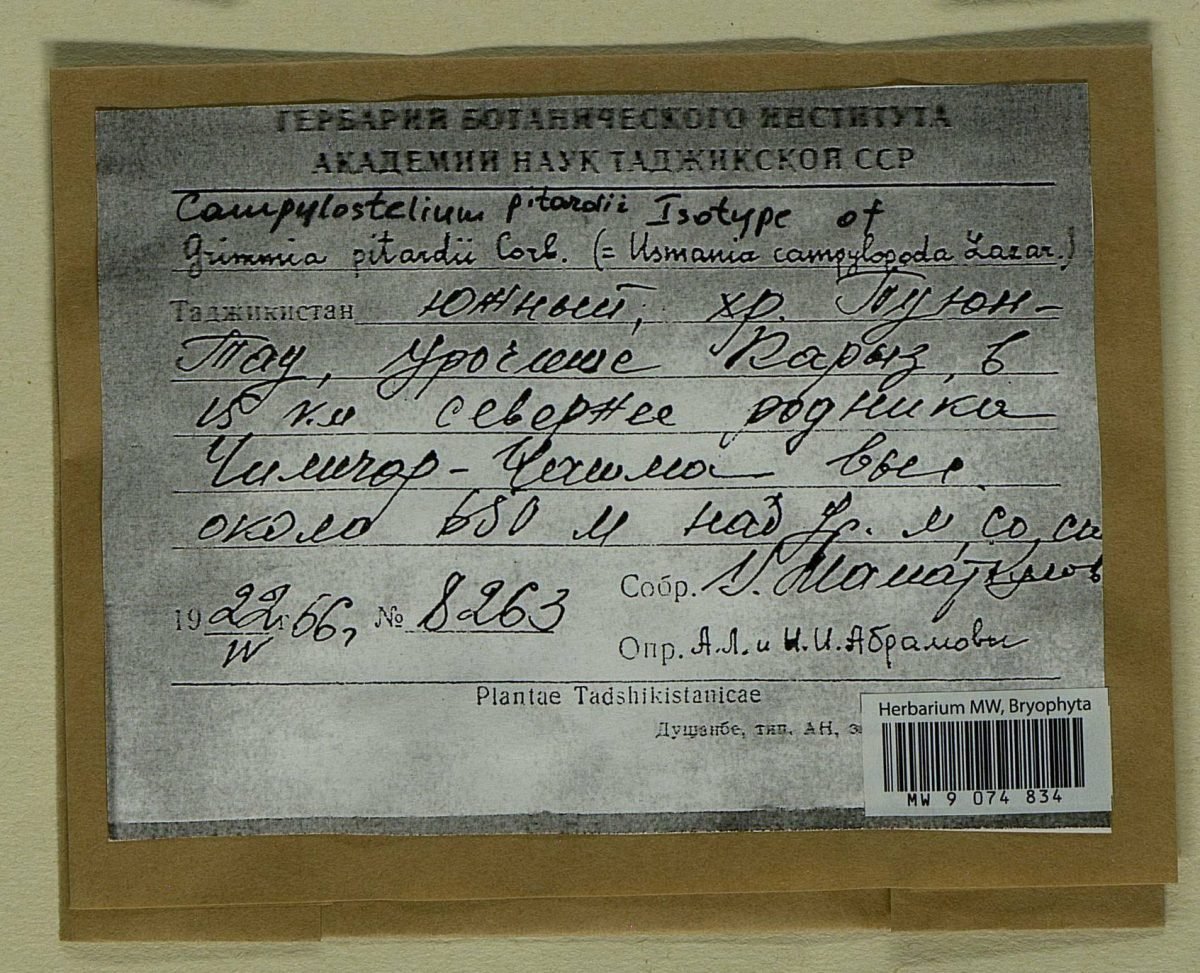 ГЕРБАРИЙ БОТАНИЧЕСКОГО ИНСТИТУТА
АКАДЕМИИ НАУК ТАДЖИКСКОЙ ССР
Campylostelium pitardii Isotype of
Grimmia pitardii Corb. (= Usmania campylopoda Lazar.)
Таджикистан южный, хр. Туюн-
Тау, урочище Карыз, в
15 км севернее родника
Чиличор-Чашма выс.
около 650 м над ур. м,
Собр. У. Маматкулов
19 22 г 66, № 8263
IV
Опр. А.Л. и И.И. Абрамовы
Plantae Tadshikistanicae
Душанбе, тип. АН,
Herbarium MW, Bryophyta
MW 9 074 834